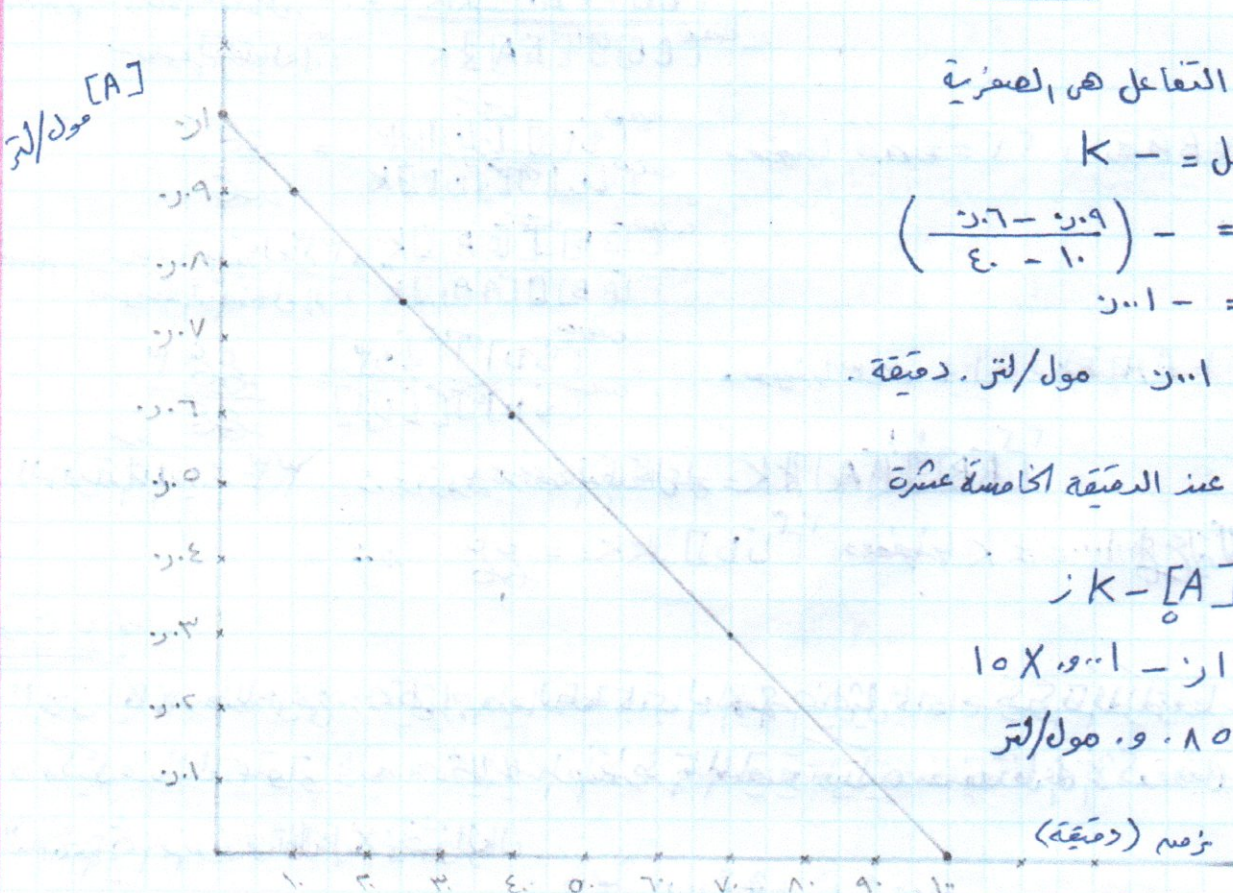 [A]
مول/لتر
٠,١
٠,٠٩
٠,٠٨
٠,٠٧
٠,٠٦
٠,٠٥
٠,٠٤
٠,٠٣
٠,٠٢
٠,٠١
١٠ ٢٠ ٣٠ ٤٠ ٥٠ ٦٠ ٧٠ ٨٠ ٩٠ ١٠٠
زمن (دقيقة)
التفاعل هي الصفرية
ل = - K
= - (٠,٠٩ - ٠,٠٦ / ١٠ - ٤٠)
= - ٠,٠٠١
٠,٠٠١ مول/لتر . دقيقة .
عند الدقيقة الخامسة عشرة
[A]٠ - K ز
٠,١ - ٠,٠٠١ X ١٥
٠,٠٨٥ مول/لتر